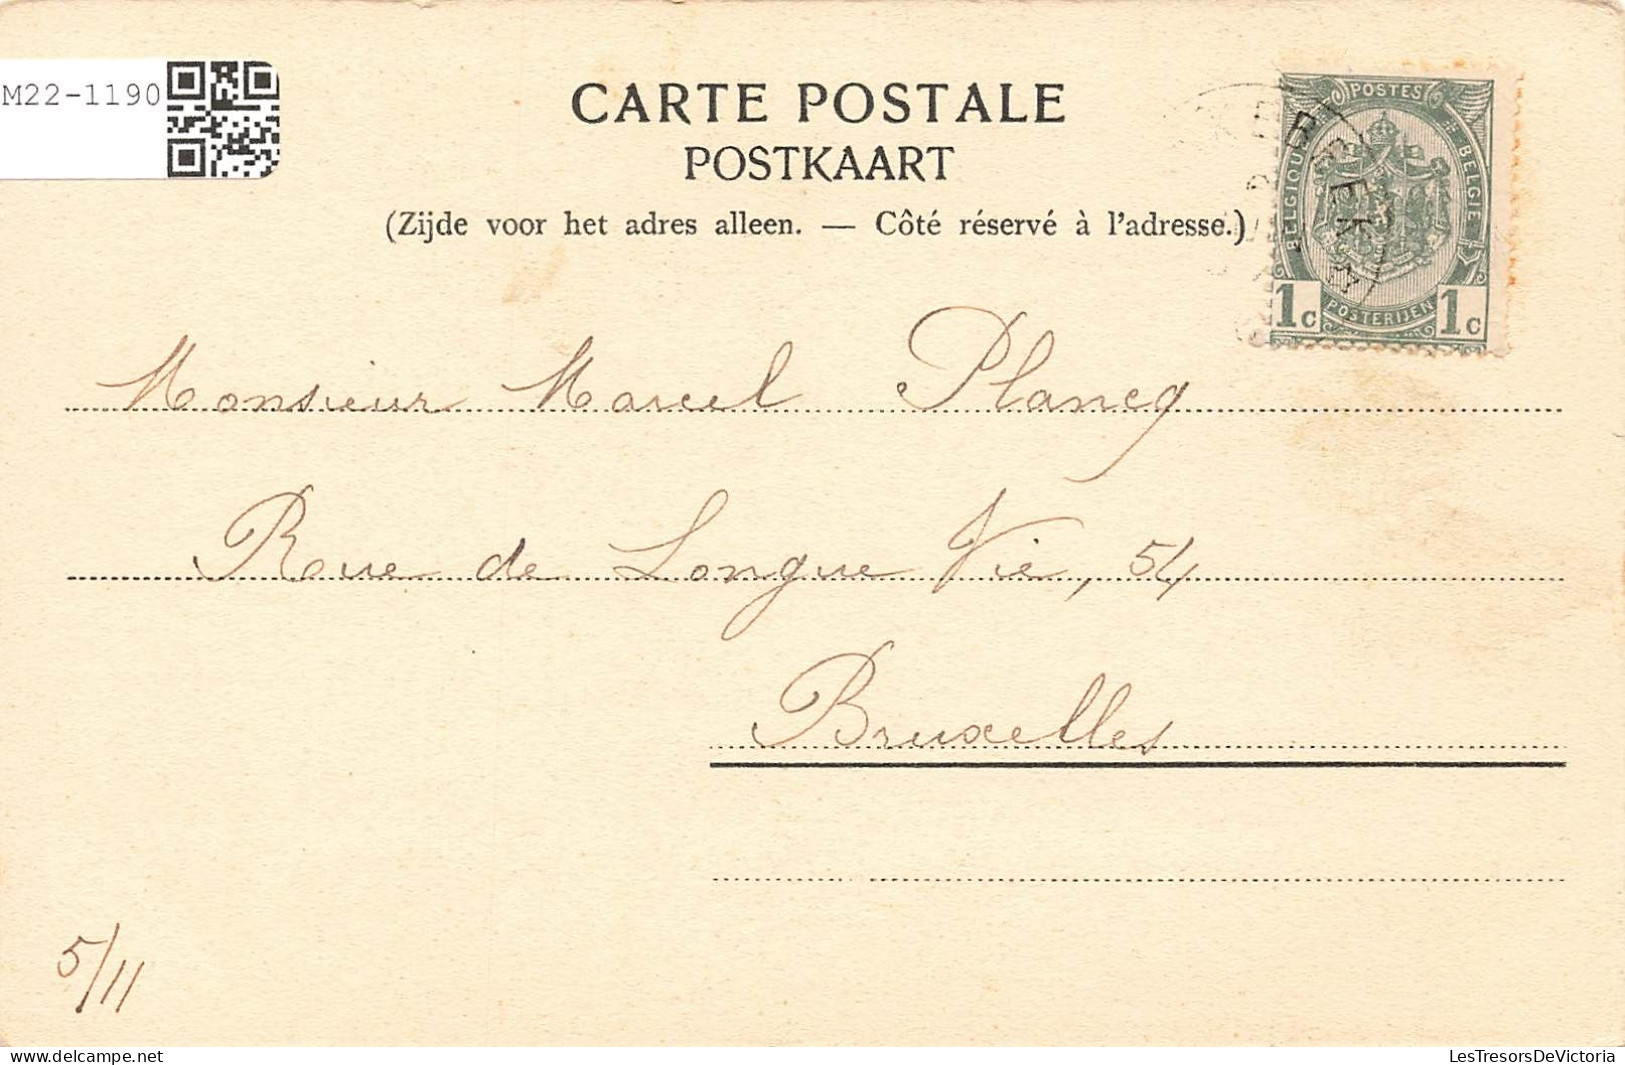 M22-1190
CARTE POSTALE
POSTKAART
(Zijde voor het adres alleen. — Côté réservé à l'adresse.)
POSTES
BELGIQUE
BELGIE
POSTERIJEN
1c 1c
Monsieur Marcel Plancq
Rue de Longue Vie, 54
Bruxelles
5/11
delcampe.net
LesTresorsDeVictoria